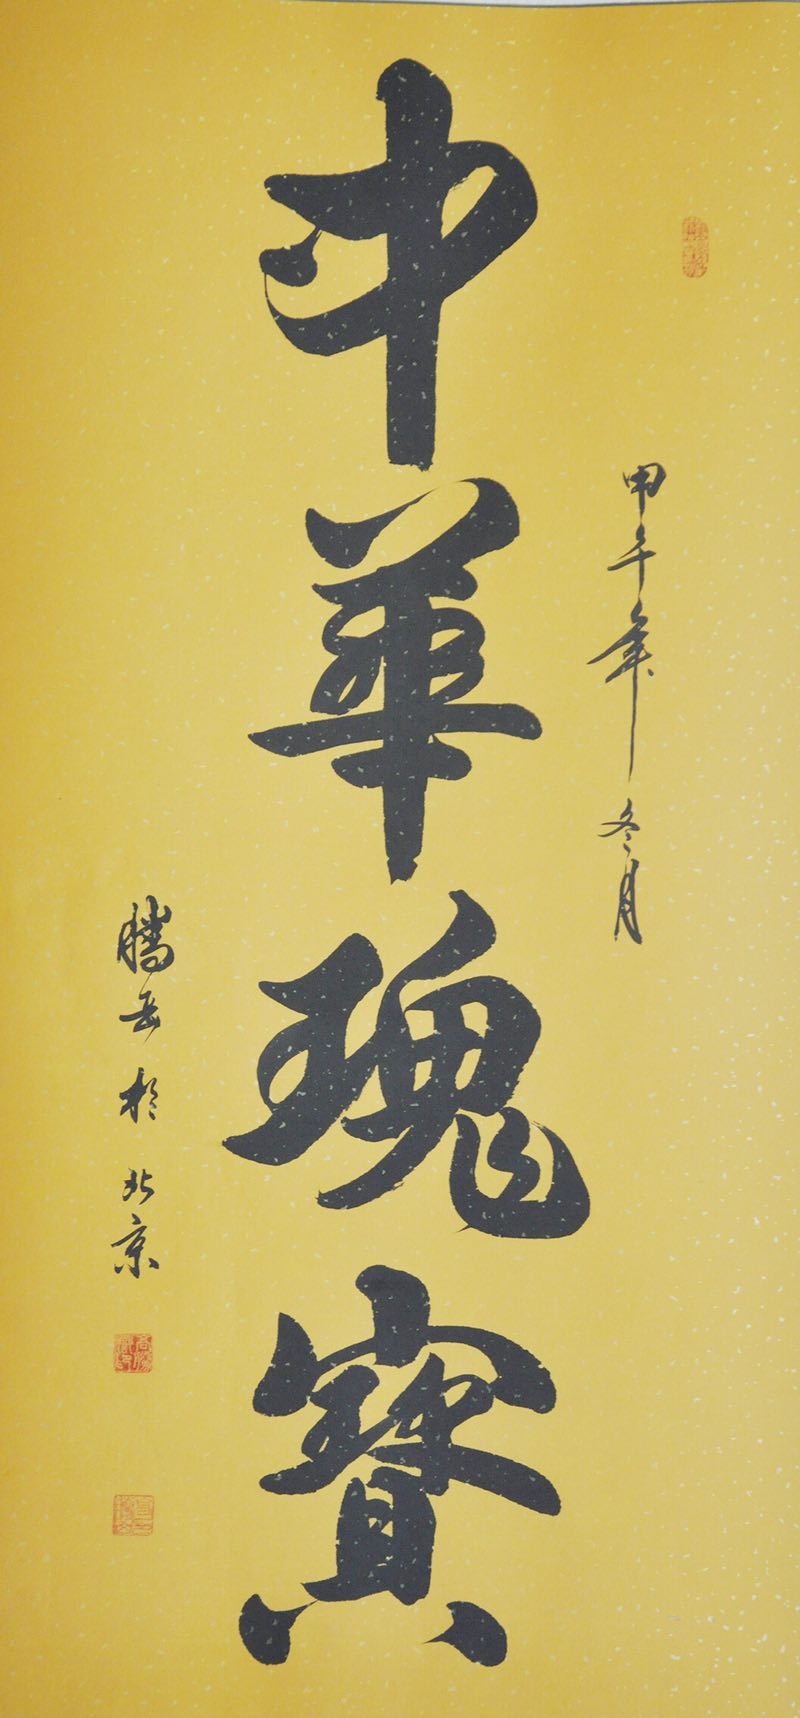 甲午年冬月
中華瑰寶
騰岳於北京